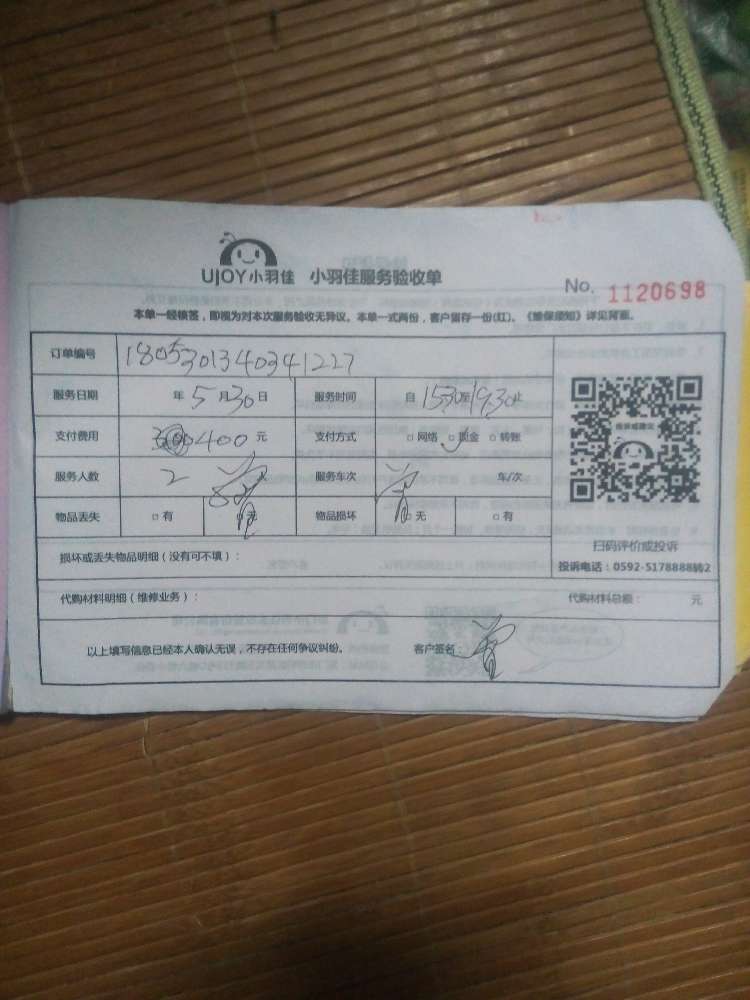 UJOY小羽佳 小羽佳服务验收单
No. 1120698
本单一经领签，即视为对本次服务验收无异议。本单一式两份，客户留存一份(红)。《维保须知》详见背面。
订单编号 1805301340341227
服务日期 年 5 月 30 日 服务时间 自 1530至1930止
支付费用 400 元 支付方式 □网络 □现金 □转账
服务人数 2 服务车次 车/次
物品丢失 □有 □无 物品损坏 □无 □有
投诉或建议
扫码评价或投诉
投诉电话：0592-5178888转2
损坏或丢失物品明细（没有可不填）：
代购材料明细（维修业务）： 代购材料总额： 元
以上填写信息已经本人确认无误，不存在任何争议纠纷。 客户签名：